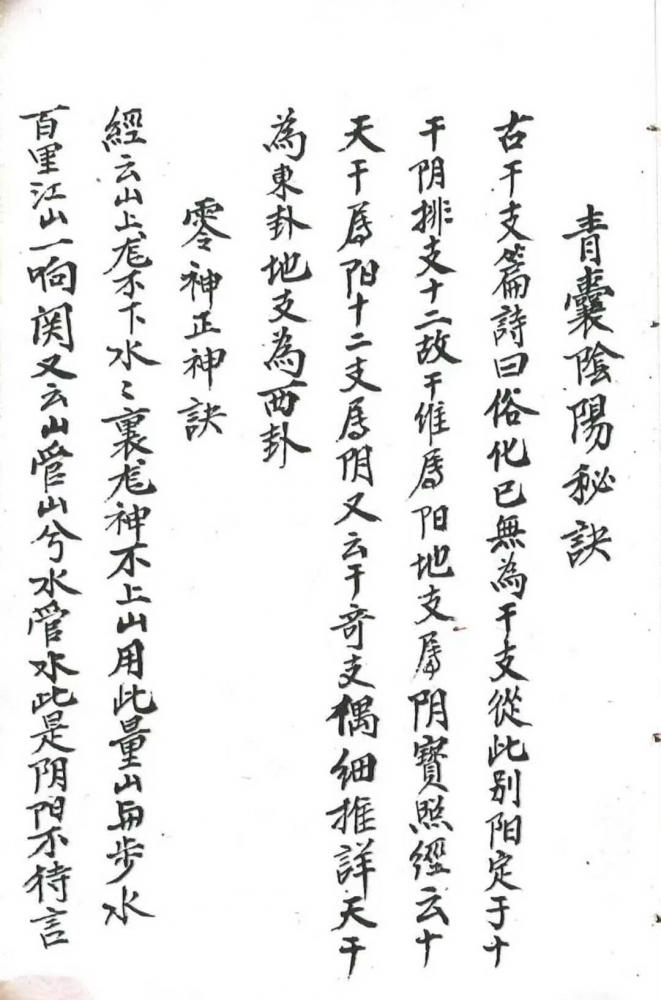 青囊陰陽秘訣
古干支篇詩曰俗化已無為干支從此别阳定于十
干阴排支十二故干维属阳地支属阴寳照經云十
天干属阳十二支属阴又云干竒支偶细推詳天干
為東卦地支為西卦
零神正神訣
經云山上尨不下水〻裏尨神不上山用此量山与步水
百里江山一响関又云山管山兮水管水此是阴阳不待言